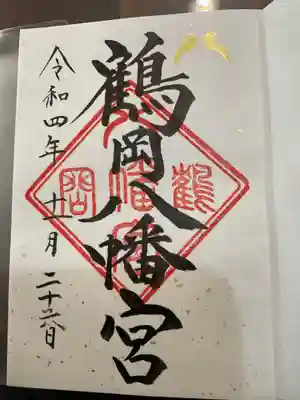 八
鶴岡八幡宮
鶴
八幡宮
岡
令和四年十一月二十六日